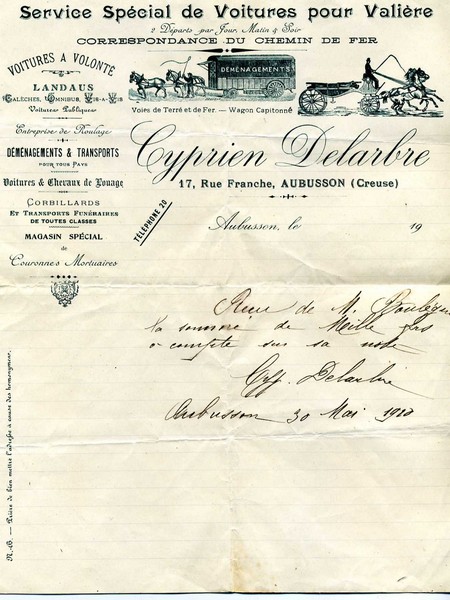 Service Spécial de Voitures pour Valière
2 Départs par Jour, Matin & Soir
CORRESPONDANCE DU CHEMIN DE FER
VOITURES A VOLONTÉ
LANDAUS
Calèches, Omnibus, Vis-a-Vis
Voitures Publiques
Entreprise de Roulage
DÉMÉNAGEMENTS & TRANSPORTS
POUR TOUS PAYS
Voitures & Chevaux de Louage
CORBILLARDS
ET TRANSPORTS FUNÉRAIRES
DE TOUTES CLASSES
MAGASIN SPÉCIAL
de
Couronnes Mortuaires
DÉMÉNAGEMENTS
Voies de Terre et de Fer. — Wagon Capitonné
Cyprien Delarbre
17, Rue Franche, AUBUSSON (Creuse)
TÉLÉPHONE 20
Aubusson, le 19
Recu de M.
la somme de Mille frs
a compte sur sa note
Cyp. Delarbre
Aubusson 30 Mai 1910
N.-B. — Prière de bien mettre l'adresse à cause des homonymes.